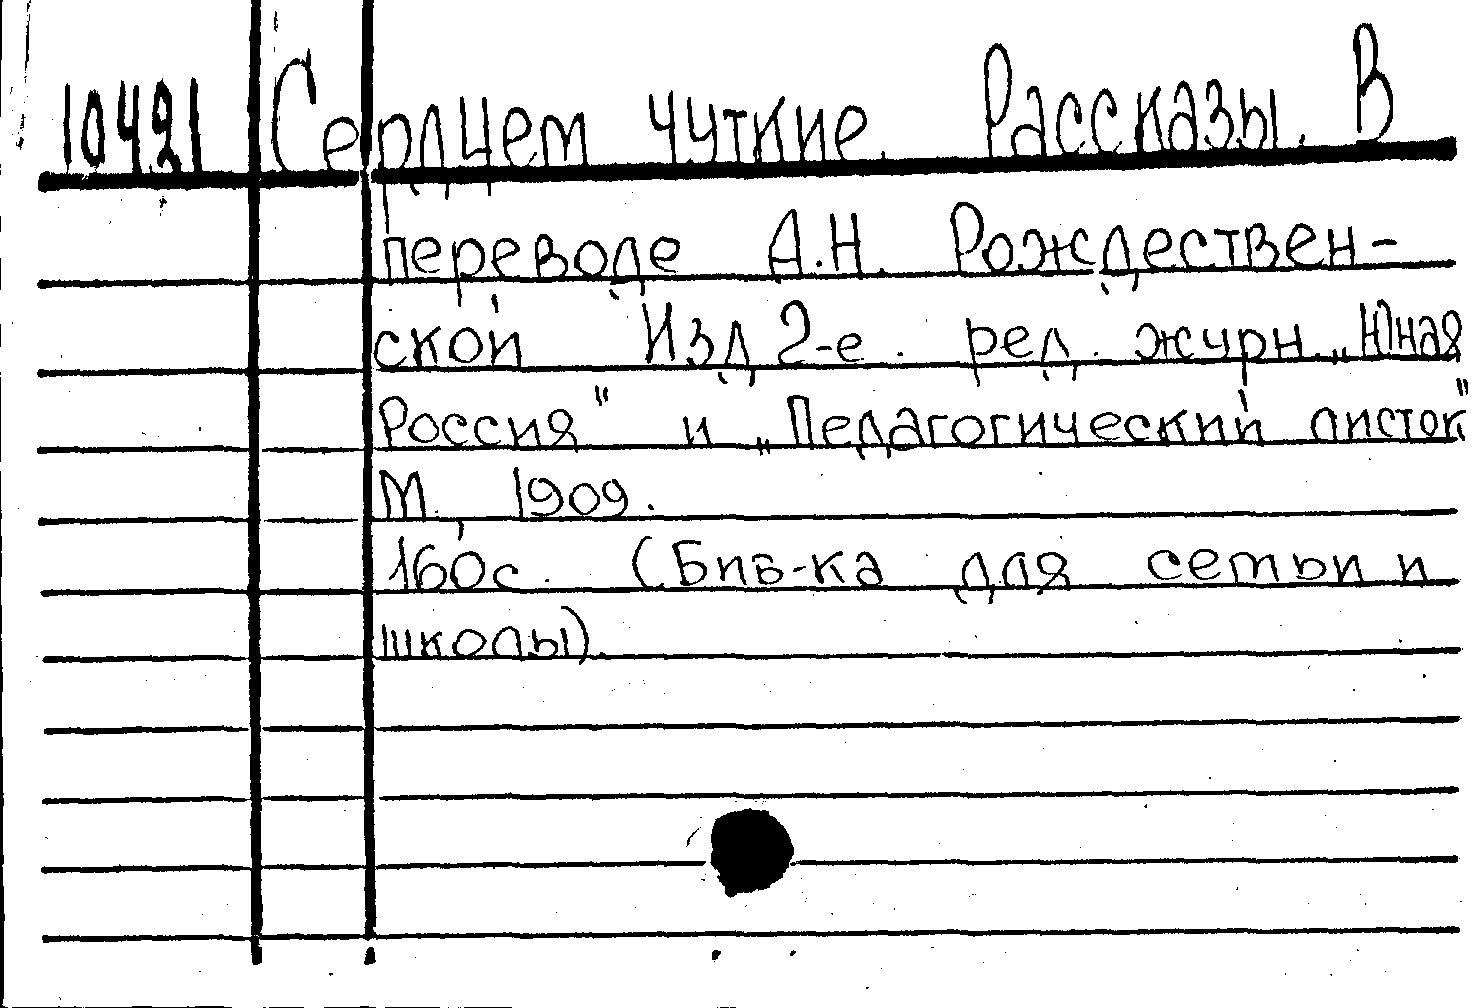 10421 Сердцем чуткие. Рассказы. В
переводе А.Н. Рождествен-
ской Изд 2-е. ред. журн. „Юная
Россия" и „Педагогический листок"
М., 1909.
160с. (Биб-ка для семьи и
школы).